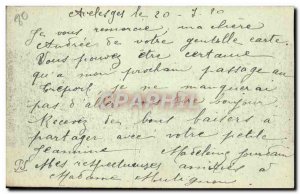 Avelesges le 20-7-10
Je vous remercie, ma chère
Andrée de votre gentille carte.
Vous pouvez être certaine
qu'a mon prochain passage au
Tréport je ne manquerai
pas d'aller
Recevez des bons baisers à
partager avec votre petite
Jeannine Madeleine Jourdain
PS Mes respectueuses amitiés à
Madame
CPARAMA